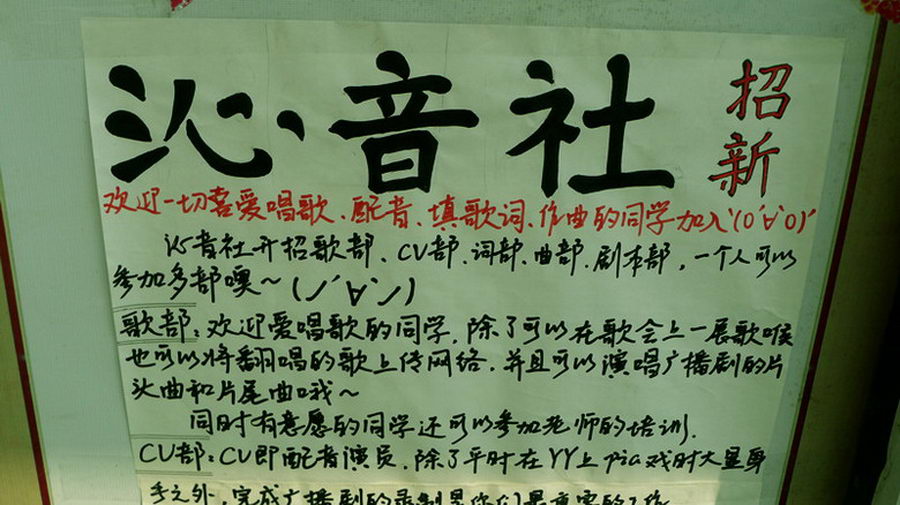 沁音社 招新
欢迎一切喜爱唱歌、配音、填歌词、作曲的同学加入(O´∀`O)′
沁音社开招歌部、CV部、词部、曲部、剧本部，一个人可以
参加多部噢～(ノ´∀`ノ)
歌部：欢迎爱唱歌的同学，除了可以在歌会上一展歌喉
也可以将翻唱的歌上传网络，并且可以演唱广播剧的片
头曲和片尾曲哦～
同时有意愿的同学还可以参加老师的培训.
CV部：CV即配音演员，除了平时在YY上pia戏时大显身
手之外，完成广播剧的录制是你们最重要的工作